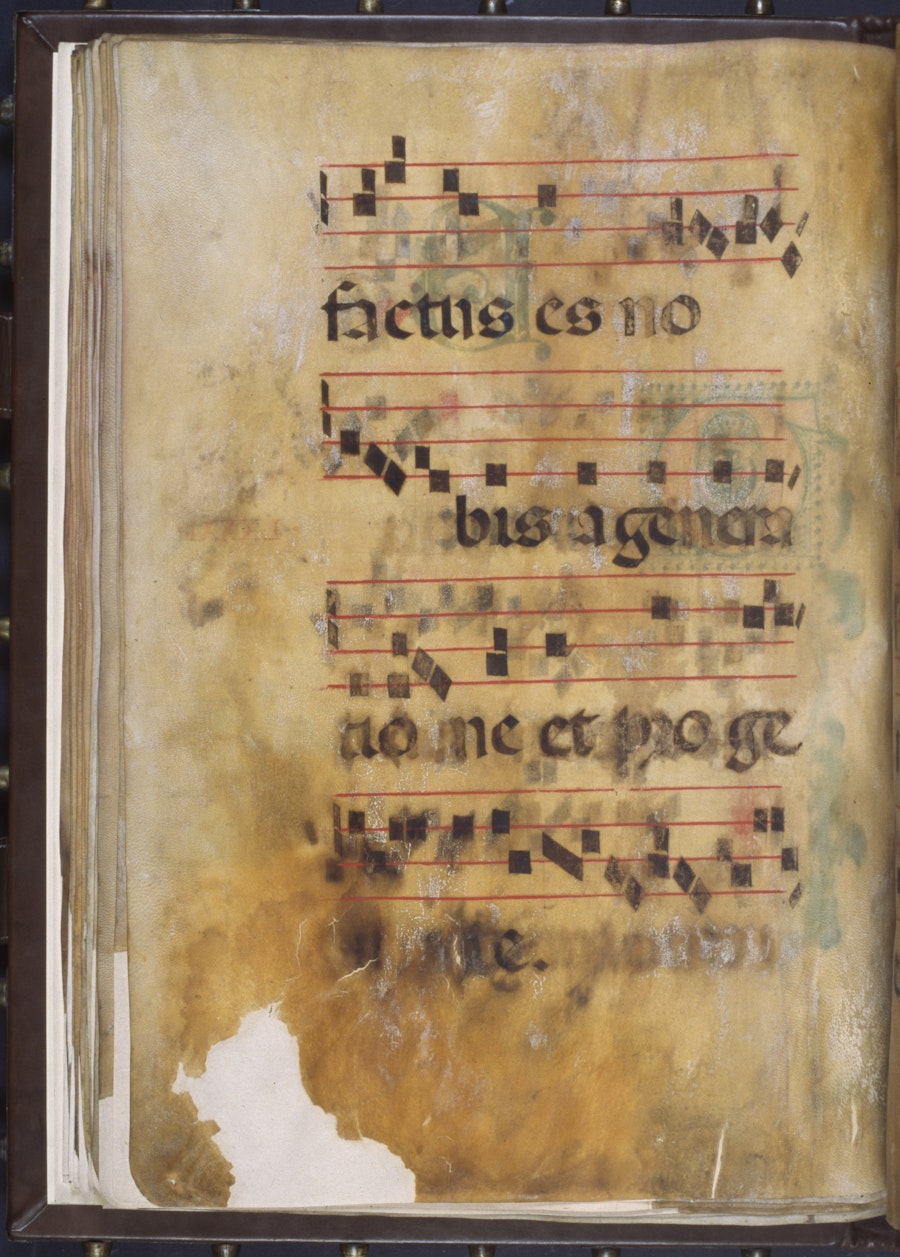 factus es no
bis a genera
tio ne et pro ge
nie.